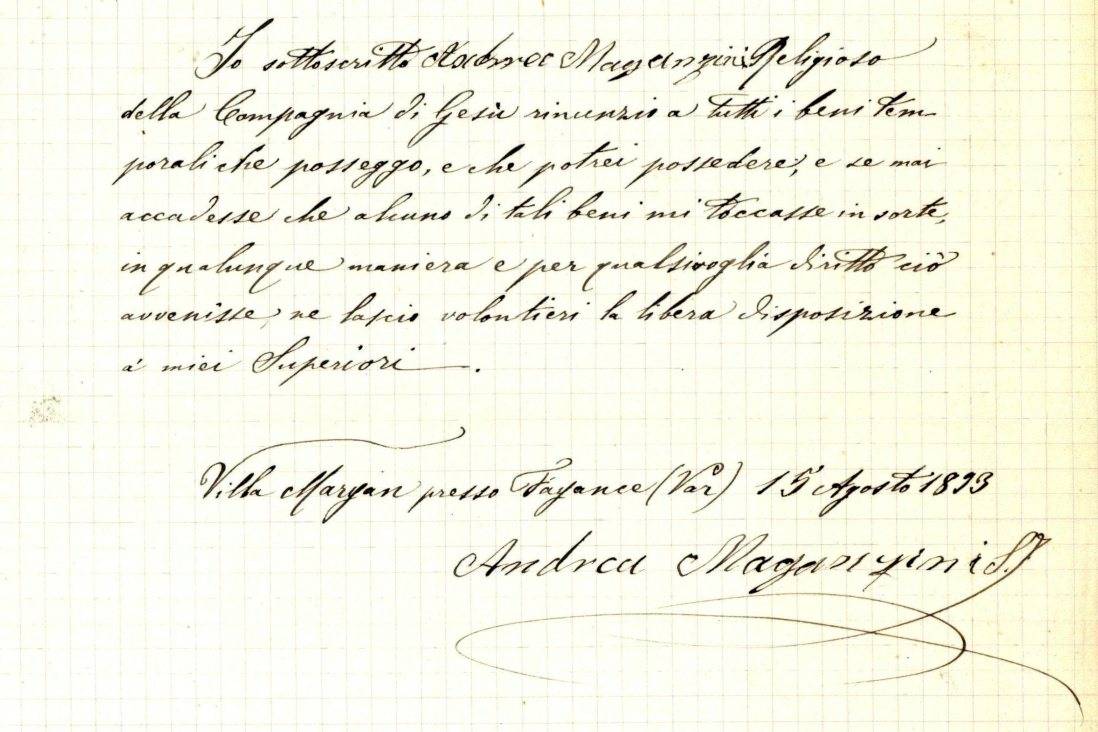 Io sottoscritto Andrea Maganzini Religioso
della Compagnia di Gesù rinunzio a tutti i beni tem-
porali che posseggo, e che potrei possedere, e se mai
accadesse che alcuno di tali beni mi toccasse in sorte,
in qualunque maniera e per qualsivoglia diritto ciò
avvenisse, ne lascio volontieri la libera disposizione
a' miei Superiori.
Villa Margan presso Fayance (Var) 15 Agosto 1893
Andrea Maganzini S.J